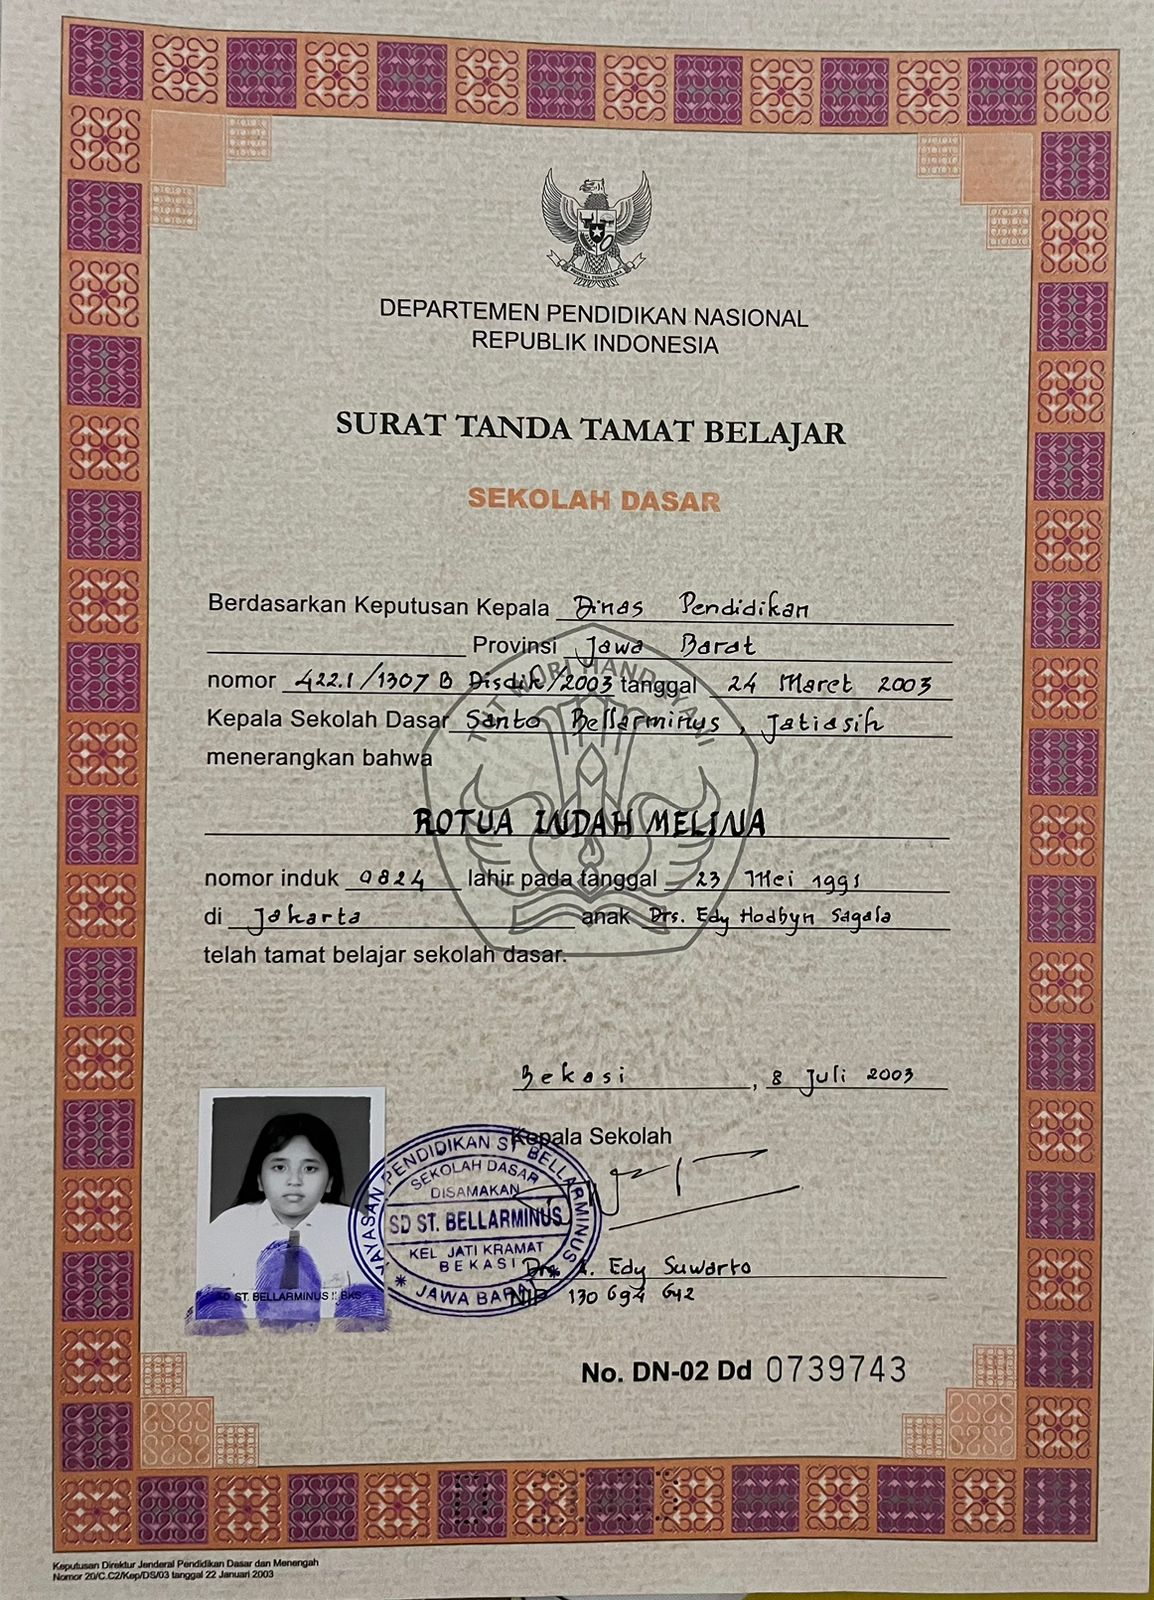 DEPARTEMEN PENDIDIKAN NASIONAL
REPUBLIK INDONESIA
SURAT TANDA TAMAT BELAJAR
SEKOLAH DASAR
Berdasarkan Keputusan Kepala Dinas Pendidikan
Provinsi Jawa Barat
nomor 422.1/1307 B Disdik/2003 tanggal 24 Maret 2003
Kepala Sekolah Dasar Santo Bellarminus, Jatiasih
menerangkan bahwa
ROTUA INDAH MELINA
nomor induk 0824 lahir pada tanggal 23 Mei 1991
di Jakarta anak Drs. Edy Hodbyn Sagala
telah tamat belajar sekolah dasar.
TUT WURI HANDAYANI
Bekasi, 8 Juli 2003
Kepala Sekolah
YAYASAN PENDIDIKAN ST BELLARMINUS
SEKOLAH DASAR
DISAMAKAN
SD ST. BELLARMINUS
KEL JATI KRAMAT
BEKASI
* JAWA BARAT *
SD ST. BELLARMINUS BKS
Drs. Edy Suwarto
NIP 130 694 642
No. DN-02 Dd 0739743
Keputusan Direktur Jenderal Pendidikan Dasar dan Menengah
Nomor 20/C.C2/Kep/DS/03 tanggal 22 Januari 2003